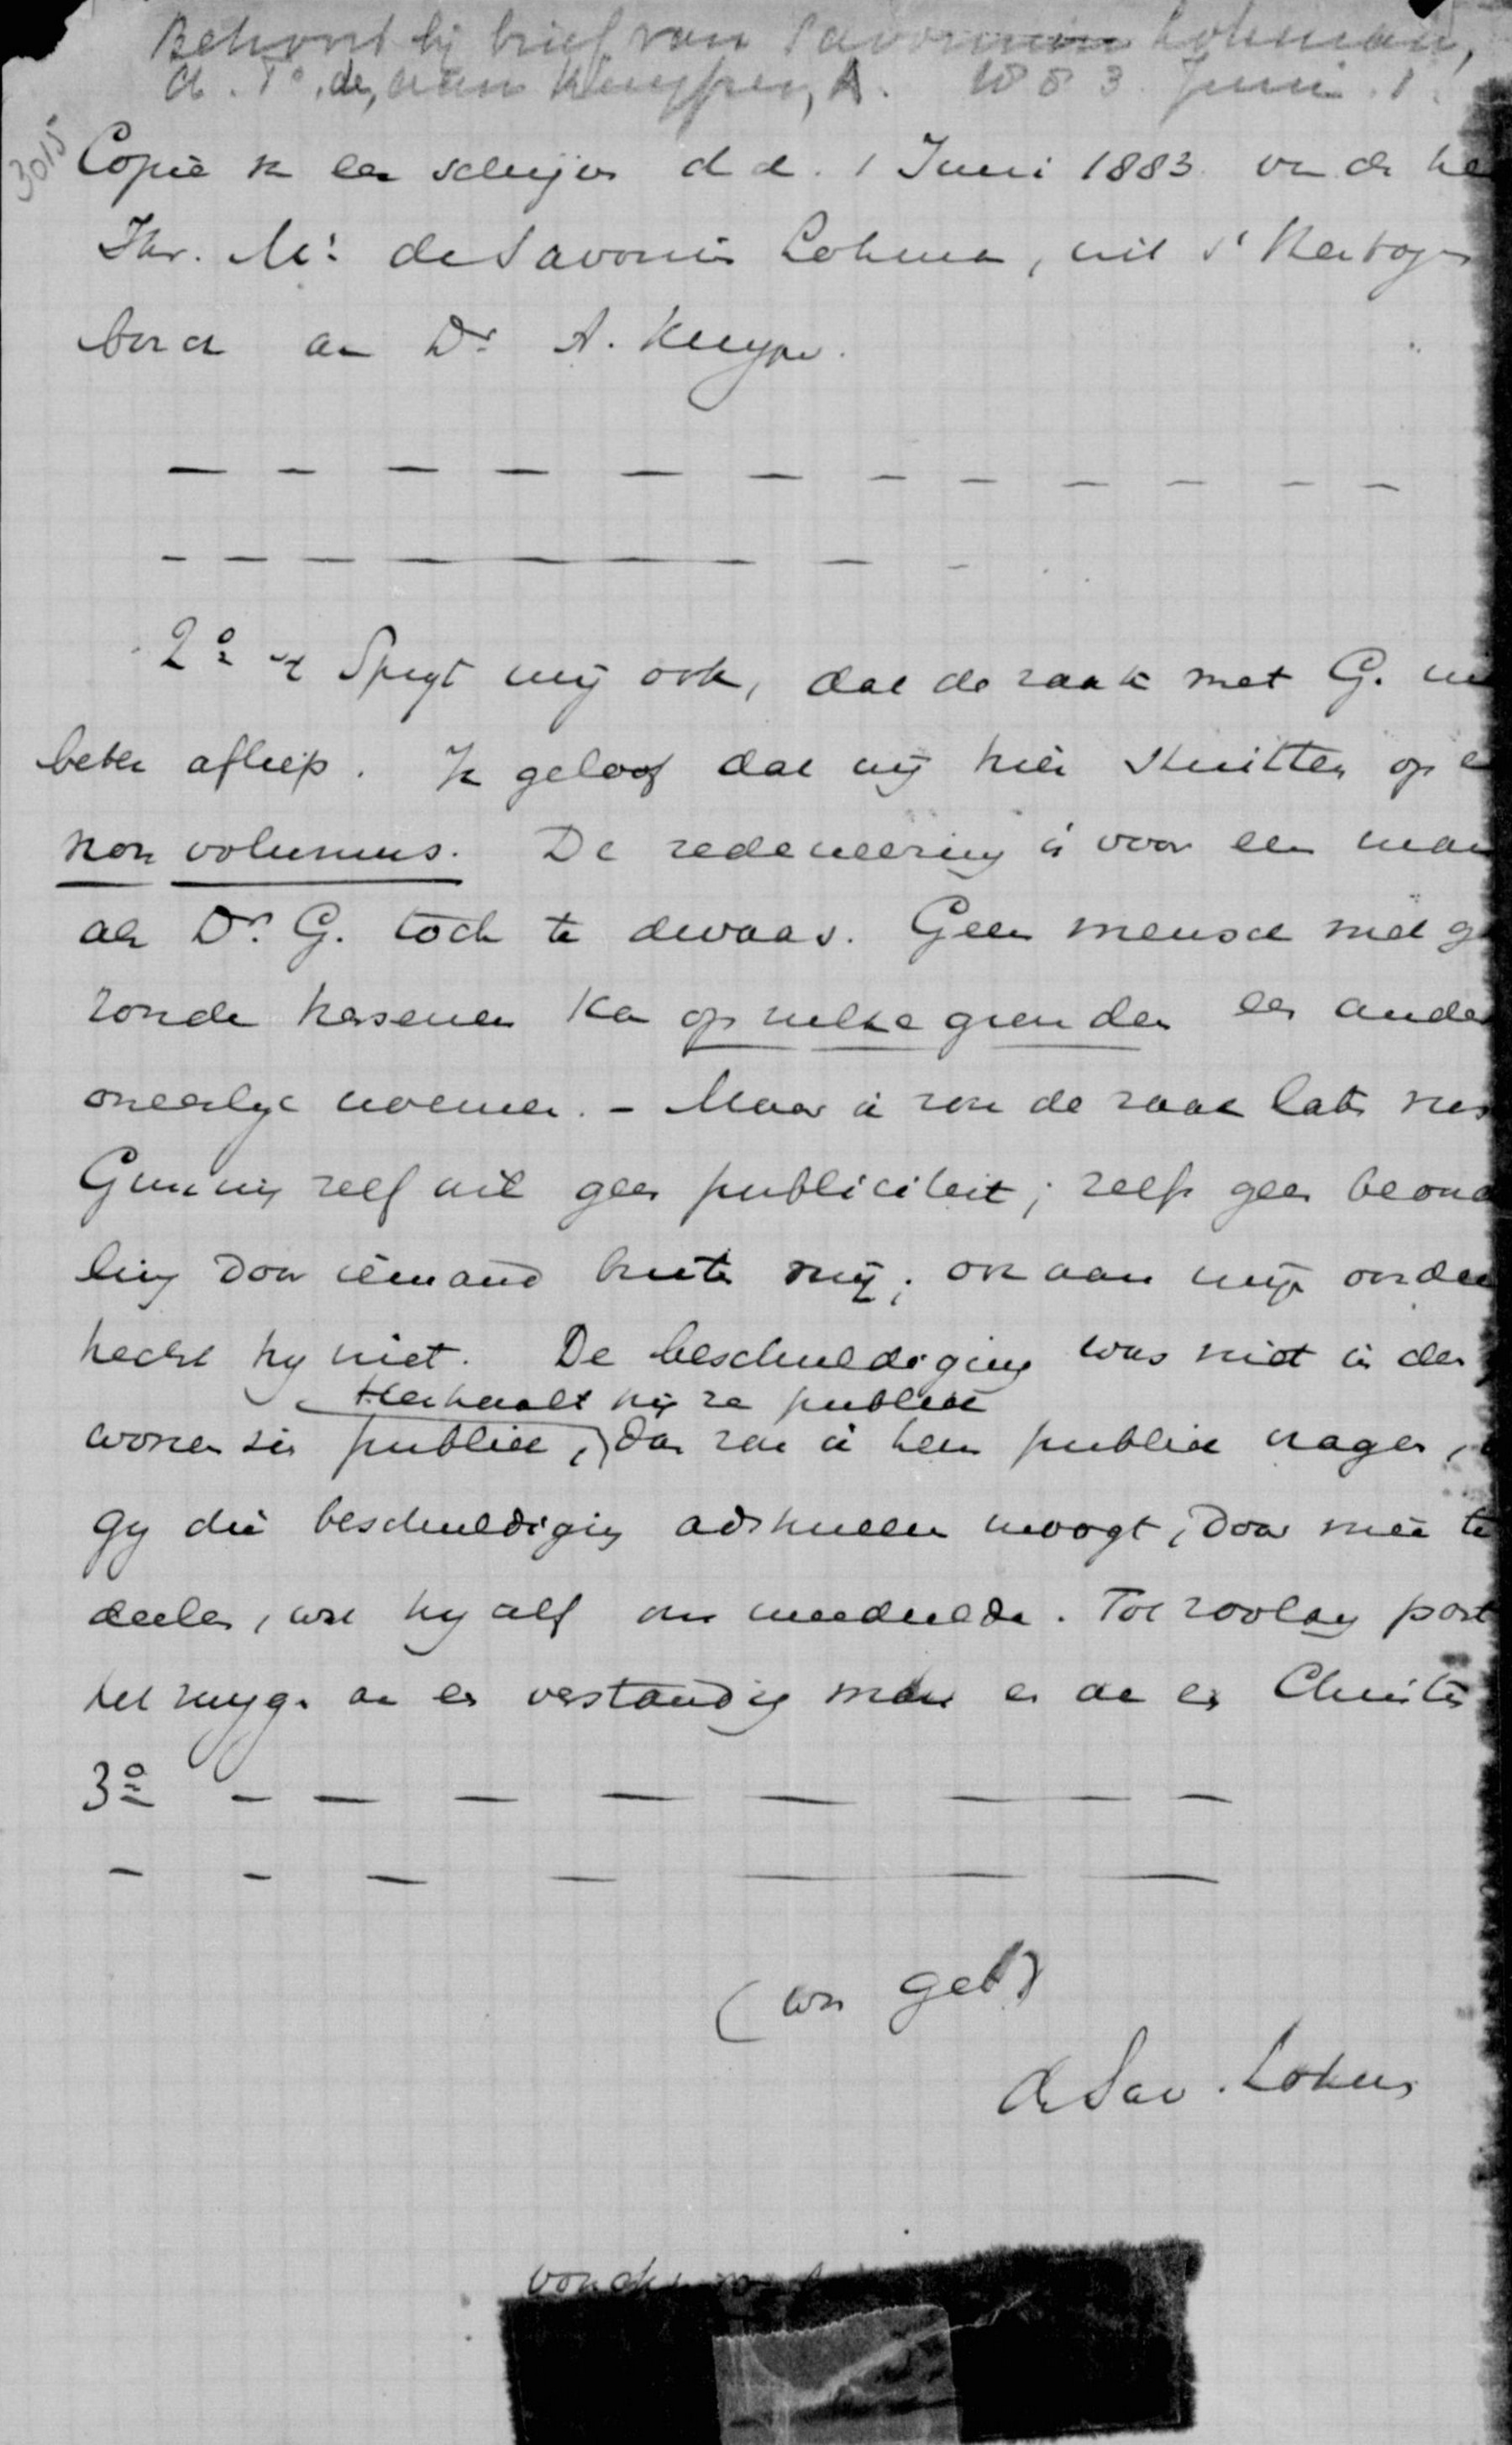 Behoort bij brief van Savornin Lohman,
A. F. de, aan Kuyper, A. 1883 Juni 1.
3015
Copie v een schrijven d d. 1 Juni 1883 van de he
Jhr. Mr de Savornin Lohman, uit s' Hertogen
bosch aan Dr A. Kuyper.
2o 't Spijt mij ook, dat de zaak met G. ni
beter afliep. Ik geloof dat wij hier stuitten op e
non volumus. De redeneering is voor een man
als Dr. G. toch te dwaas. Geen mensch met ge
zonde hersenen kan op zulke gronden een ander
oneerlijk noemen. - Maar ik zou de zaak laten rus
Gunning zelf wil geen publiciteit; zelfs geen beoord
ling door iemand buiten mij; ook aan mijn oordeel
hecht hij niet. De beschuldiging was niet in den ge
Herhaalt hij ze publiek
wonen zin publiek, dan zou ik hem publiek vragen,
gij die beschuldiging adstrueeren moogt, door mee te
deelen, wat hij zelf ons meedeelde. Tot zoolang past
het zwijgen aan een verstandig man en aan een Christen
3o
(was get)
de Sav. Lohman